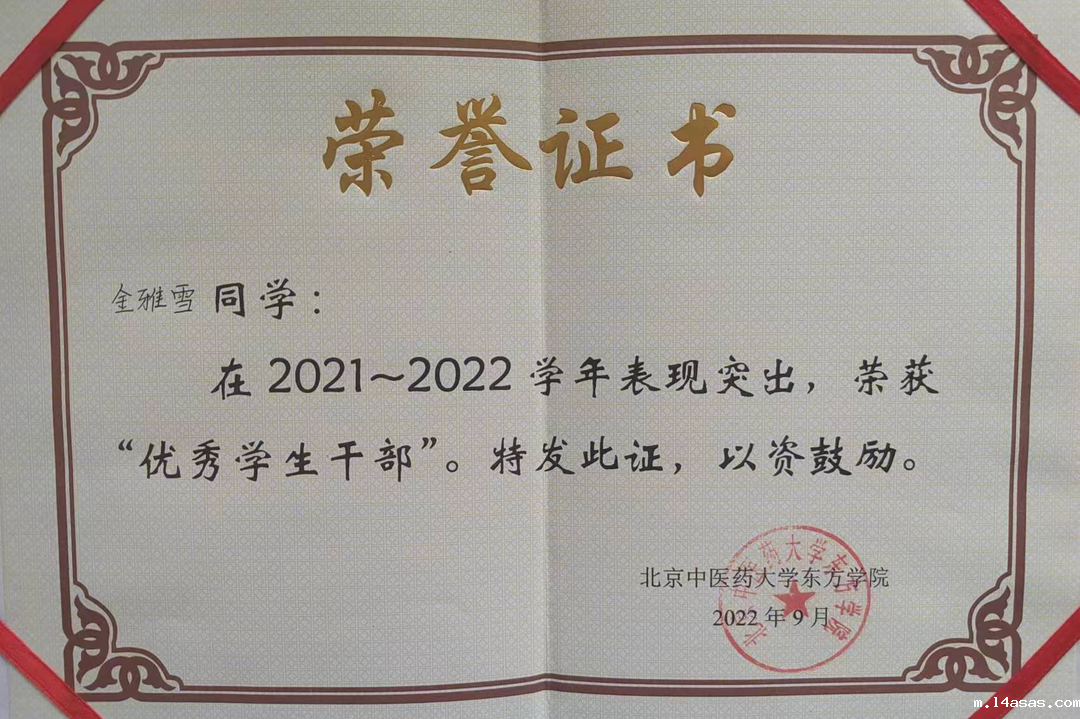 荣誉证书
金雅雪 同学：
在 2021~2022 学年表现突出，荣获
“优秀学生干部”。特发此证，以资鼓励。
北京中医药大学东方学院
2022 年 9 月
北京中医药大学东方学院
m.14asas.com